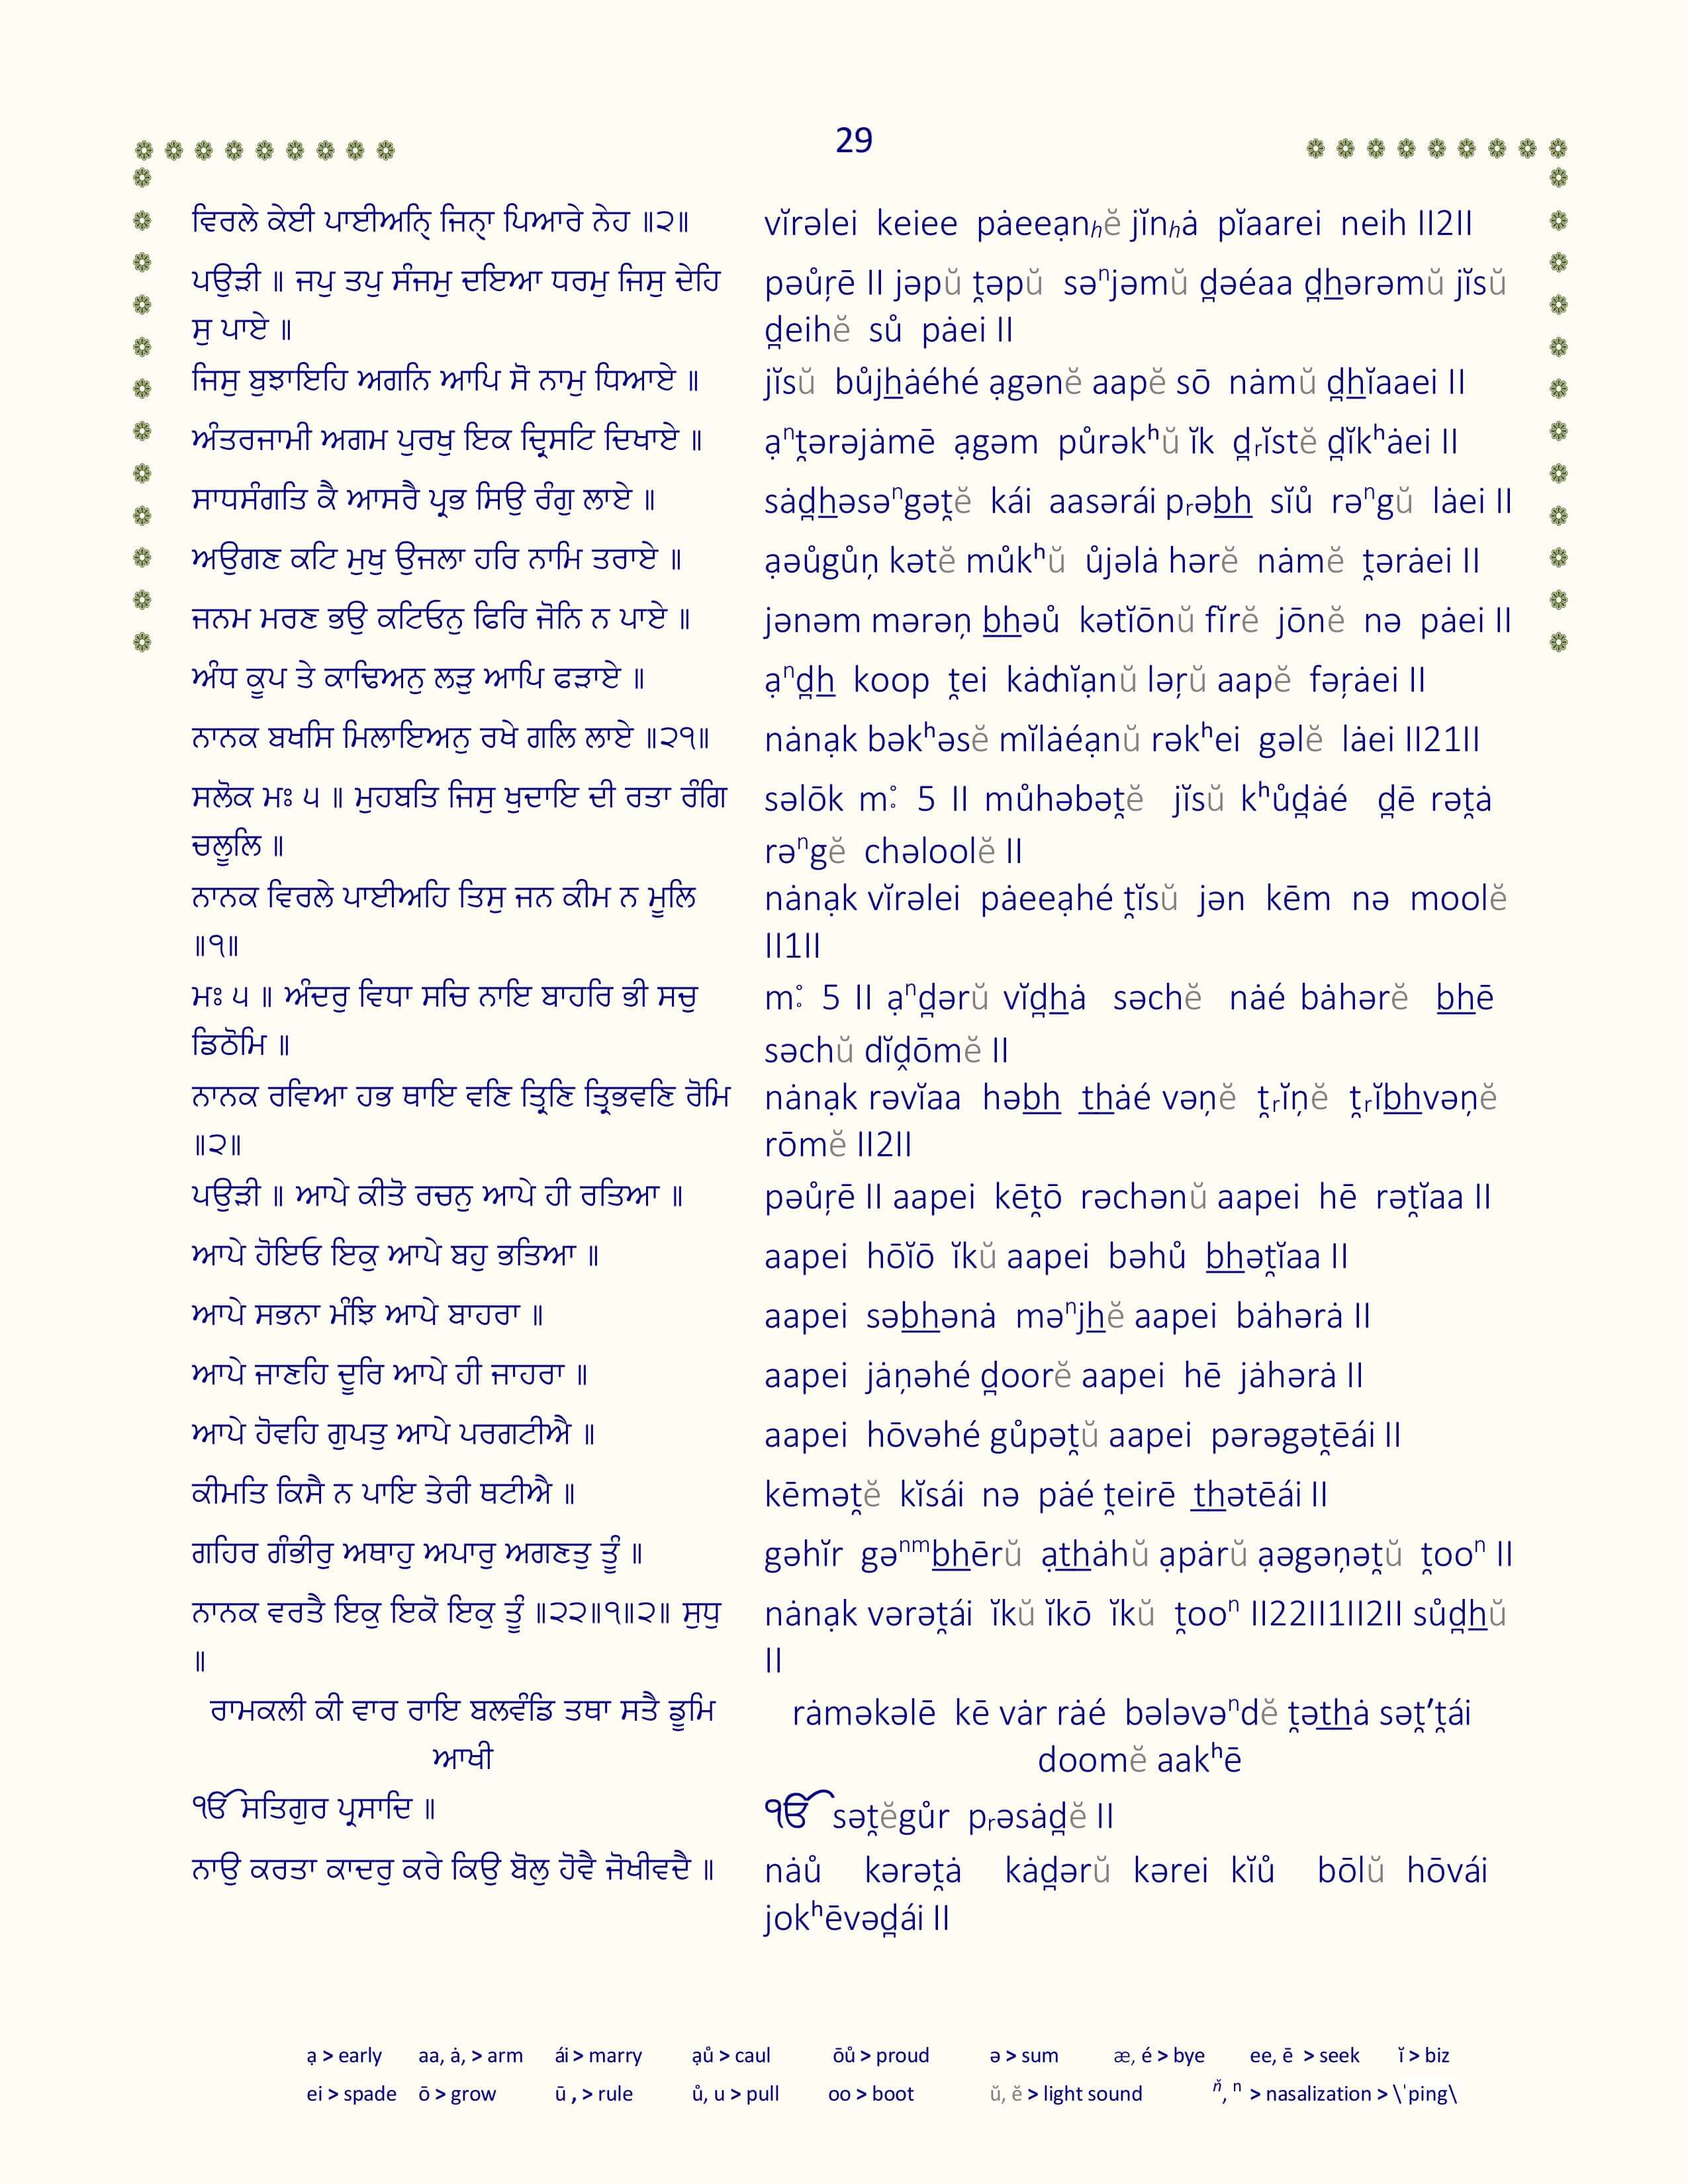 29
ਵਿਰਲੇ ਕੇਈ ਪਾਈਅਨ੍ਹਿ ਜਿਨ੍ਹਾ ਪਿਆਰੇ ਨੇਹ ॥੨॥
vĭrəlei keiee pȧeeạnₕĕ jĭnₕȧ pĭaarei neih II2II
ਪਉੜੀ ॥ ਜਪੁ ਤਪੁ ਸੰਜਮੁ ਦਇਆ ਧਰਮੁ ਜਿਸੁ ਦੇਹਿ
ਸੁ ਪਾਏ ॥
pəůŗē II jəpŭ t̪əpŭ səⁿjəmŭ d̪əéaa d̪h̲ərəmŭ jĭsŭ
d̪eihĕ sů pȧei II
ਜਿਸੁ ਬੁਝਾਇਹਿ ਅਗਨਿ ਆਪਿ ਸੋ ਨਾਮੁ ਧਿਆਏ ॥
jĭsŭ bůjh̲ȧéhé ạgənĕ aapĕ sō nȧmŭ d̪h̲ĭaaei II
ਅੰਤਰਜਾਮੀ ਅਗਮ ਪੁਰਖੁ ਇਕ ਦ੍ਰਿਸਟਿ ਦਿਖਾਏ ॥
ạⁿt̪ərəjȧmē ạgəm půrəkʰŭ ĭk d̪ᵣĭstĕ d̪ĭkʰȧei II
ਸਾਧਸੰਗਤਿ ਕੈ ਆਸਰੈ ਪ੍ਰਭ ਸਿਉ ਰੰਗੁ ਲਾਏ ॥
sȧd̪h̲əsəⁿgət̪ĕ kái aasərái pᵣəb̲h̲ sĭů rəⁿgŭ lȧei II
ਅਉਗਣ ਕਟਿ ਮੁਖੁ ਉਜਲਾ ਹਰਿ ਨਾਮਿ ਤਰਾਏ ॥
ạəůgůņ kətĕ můkʰŭ ůjəlȧ hərĕ nȧmĕ t̪ərȧei II
ਜਨਮ ਮਰਣ ਭਉ ਕਟਿਓਨੁ ਫਿਰਿ ਜੋਨਿ ਨ ਪਾਏ ॥
jənəm mərəņ b̲h̲əů kətĭōnŭ fĭrĕ jōnĕ nə pȧei II
ਅੰਧ ਕੂਪ ਤੇ ਕਾਢਿਅਨੁ ਲੜੁ ਆਪਿ ਫੜਾਏ ॥
ạⁿd̪h̲ koop t̪ei kȧȸĭạnŭ ləŗŭ aapĕ fəŗȧei II
ਨਾਨਕ ਬਖਸਿ ਮਿਲਾਇਅਨੁ ਰਖੇ ਗਲਿ ਲਾਏ ॥੨੧॥
nȧnạk bəkʰəsĕ mĭlȧéạnŭ rəkʰei gəlĕ lȧei II21II
ਸਲੋਕ ਮਃ ੫ ॥ ਮੁਹਬਤਿ ਜਿਸੁ ਖੁਦਾਇ ਦੀ ਰਤਾ ਰੰਗਿ
ਚਲੂਲਿ ॥
səlōk m: 5 II můhəbət̪ĕ jĭsŭ kʰůd̪ȧé d̪ē rət̪ȧ
rəⁿgĕ chəloolĕ II
ਨਾਨਕ ਵਿਰਲੇ ਪਾਈਅਹਿ ਤਿਸੁ ਜਨ ਕੀਮ ਨ ਮੂਲਿ
॥੧॥
nȧnạk vĭrəlei pȧeeạhé t̪ĭsŭ jən kēm nə moolĕ
II1II
ਮਃ ੫ ॥ ਅੰਦਰੁ ਵਿਧਾ ਸਚਿ ਨਾਇ ਬਾਹਰਿ ਭੀ ਸਚੁ
ਡਿਠੋਮਿ ॥
m: 5 II ạⁿd̪ərŭ vĭd̪h̲ȧ səchĕ nȧé bȧhərĕ b̲h̲ē
səchŭ dĭḓōmĕ II
ਨਾਨਕ ਰਵਿਆ ਹਭ ਥਾਇ ਵਣਿ ਤ੍ਰਿਣਿ ਤ੍ਰਿਭਵਣਿ ਰੋਮਿ
॥੨॥
nȧnạk rəvĭaa həb̲h̲ t̲h̲ȧé vəņĕ t̪ᵣĭņĕ t̪ᵣĭb̲h̲vəņĕ
rōmĕ II2II
ਪਉੜੀ ॥ ਆਪੇ ਕੀਤੋ ਰਚਨੁ ਆਪੇ ਹੀ ਰਤਿਆ ॥
pəůŗē II aapei kēt̪ō rəchənŭ aapei hē rət̪ĭaa II
ਆਪੇ ਹੋਇਓ ਇਕੁ ਆਪੇ ਬਹੁ ਭਤਿਆ ॥
aapei hōĭō ĭkŭ aapei bəhů b̲h̲ət̪ĭaa II
ਆਪੇ ਸਭਨਾ ਮੰਝਿ ਆਪੇ ਬਾਹਰਾ ॥
aapei səb̲h̲ənȧ məⁿjh̲ĕ aapei bȧhərȧ II
ਆਪੇ ਜਾਣਹਿ ਦੂਰਿ ਆਪੇ ਹੀ ਜਾਹਰਾ ॥
aapei jȧņəhé d̪oorĕ aapei hē jȧhərȧ II
ਆਪੇ ਹੋਵਹਿ ਗੁਪਤੁ ਆਪੇ ਪਰਗਟੀਐ ॥
aapei hōvəhé gůpət̪ŭ aapei pərəgət̪ēái II
ਕੀਮਤਿ ਕਿਸੈ ਨ ਪਾਇ ਤੇਰੀ ਥਟੀਐ ॥
kēmət̪ĕ kĭsái nə pȧé t̪eirē t̲h̲ətēái II
ਗਹਿਰ ਗੰਭੀਰੁ ਅਥਾਹੁ ਅਪਾਰੁ ਅਗਣਤੁ ਤੂੰ ॥
gəhĭr gəⁿᵐb̲h̲ērŭ ạt̲h̲ȧhŭ ạpȧrŭ ạəgəņət̪ŭ t̪ooⁿ II
ਨਾਨਕ ਵਰਤੈ ਇਕੁ ਇਕੋ ਇਕੁ ਤੂੰ ॥੨੨॥੧॥੨॥ ਸੁਧੁ
॥
nȧnạk vərət̪ái ĭkŭ ĭkō ĭkŭ t̪ooⁿ II22II1II2II sůd̪h̲ŭ
II
ਰਾਮਕਲੀ ਕੀ ਵਾਰ ਰਾਇ ਬਲਵੰਡਿ ਤਥਾ ਸਤੈ ਡੂਮਿ
ਆਖੀ
rȧməkəlē kē vȧr rȧé bələvəⁿdĕ t̪ət̲h̲ȧ sət̪ʹt̪ái
doomĕ aakʰē
ੴ ਸਤਿਗੁਰ ਪ੍ਰਸਾਦਿ ॥
ੴ sət̪ĕgůr pᵣəsȧd̪ĕ II
ਨਾਉ ਕਰਤਾ ਕਾਦਰੁ ਕਰੇ ਕਿਉ ਬੋਲੁ ਹੋਵੈ ਜੋਖੀਵਦੈ ॥
nȧů kərət̪ȧ kȧd̪ərŭ kərei kĭů bōlŭ hōvái
jokʰēvəd̪ái II
ạ > early aa, ȧ, > arm ái > marry ạů > caul ōů > proud ə > sum æ, é > bye ee, ē > seek ĭ > biz
ei > spade ō > grow ū , > rule ů, u > pull oo > boot ŭ, ĕ > light sound ň, ⁿ > nasalization > \ˈping\